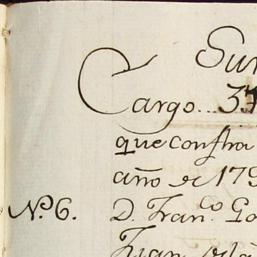 Sum
Cargo... 37
que consta
año de 179
N.º 6. D. Fran.co Go
Juan